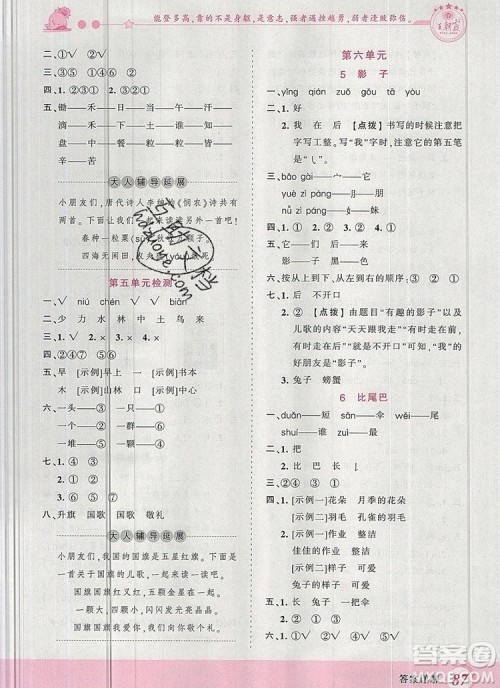 能登多高，靠的不是身躯，是意志，强者遥控越勇，弱者逢败弥伤。
王朝霞
二、②①③
三、√ √
四、1. ②③① 2. ①
五、锄——禾——日——当——午
滴——禾——下——土——汗——
盘——中——餐
大人辅导延展
小朋友们，唐代诗人李绅的《悯农》诗共
春种一粒粟
四海无闲田
第五单元检测
一、√ niú chén √ √ biān
二、少 力 水 林 中 土 鸟 来
三、1. √ 2. × 3. × 4. ×
四、②⑦③⑥
五、早 [示例]早上 一 [示例]一日
木 [示例]木林 口 [示例]口中
六、一头——③ 一只——①
一条——② 一颗——①
一个——② 一群——①
一双——③ 一颗——③
七、1. ① ④
2. ① ③
八、升旗 国歌 国歌 敬礼
大人辅导延展
小朋友们，我国的国旗是五星红旗，下面是一首关于国旗的儿歌，请你来读一读。
国旗国旗红又红，
一颗大，四颗小，
五颗星星发光亮晶晶。
国旗国旗我爱你，
我向你敬个礼。
第六单元
5 影 子
一、yǐng qián zuǒ
hǎo gǒu yòu
二、1. 好
2. 我 在 后 【点拨】书写的时候注意把
字写工整。书写“我”字时，注意它的第五笔
是“㇂”。
三、③ ①
四、它 它们 她
yuè zì páng——月
nǚ zì páng——好
五、它——们 后——面
影——子 朋——友
六、按从上到下，从左到右的顺序数笔画。
七、1. ③
2. ② 【点拨】由题目“有趣的影子”以及
儿歌的内容“天天跟我走”“有时走在
前，有时走在后，就是不开口”“我的
好朋友”可知，它是“影子”。
3. 兔子 螃蟹
6 比尾巴
一、duǎn——短 sǎn——伞 wěi——尾
shuí——谁 zuì——最
二、1. 长
2. 比 巴 长
三、② ③ ①
四、1. [示例一]花朵 月季的花朵
[示例二]羽毛 孔雀的羽毛
2. [示例一]作业 整洁
佳佳的作业 整洁
[示例二]样子 可爱
妹妹的样子 可爱
五、1. 长 兔子 一把伞
2. ①√ ②√
3. ②
答案详解 87